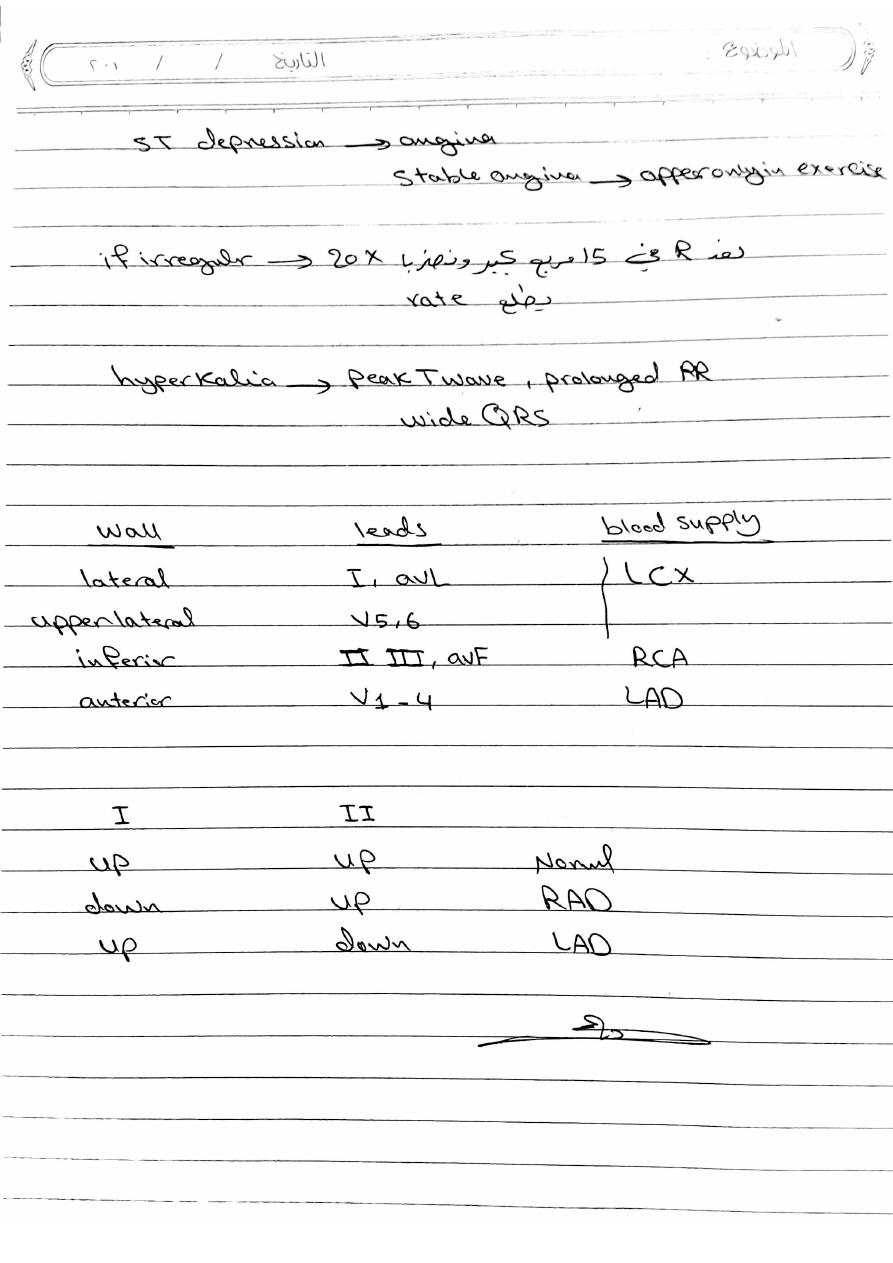 الموضوع:
التاريخ / / ٢٠١
ST depression → angina
Stable angina → apper only in exercise
if irregulr → نعد R في 15 مربع كبير ونضربا 20x
يطلع rate
hyperkalia → Peak T wave, prolonged PR
wide QRS
wall leads blood supply
lateral I, avL LCX
upper lateral V5,6
inferior II III, avF RCA
anterior V1-4 LAD
I II
up up Normal
down up RAD
up down LAD